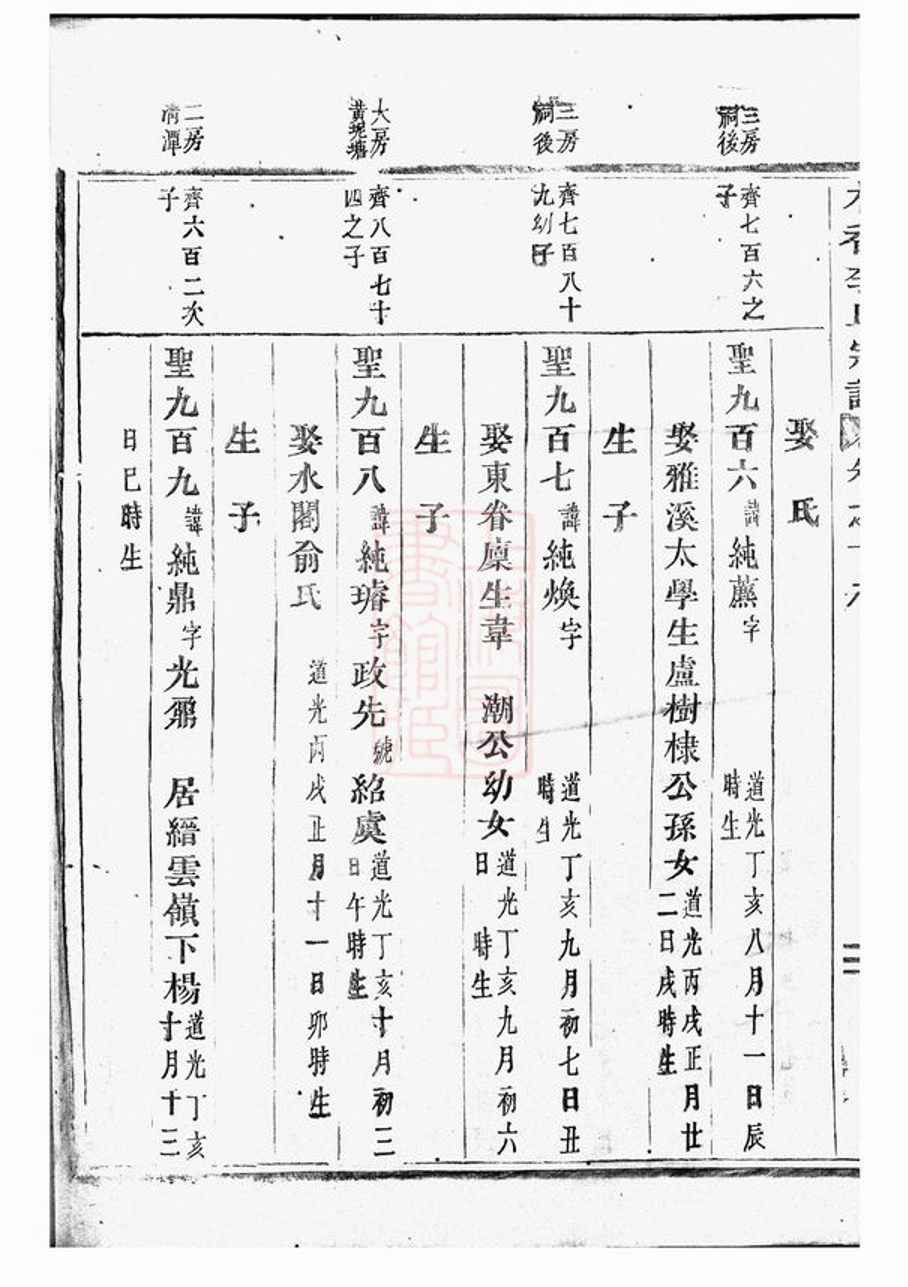 娶　氏
三房
祠後
齊七百六之
子
聖九百六諱純薰字
道光丁亥八月十一日辰
時生
娶雅溪太學生盧樹棣公孫女
道光丙戌正月廿
二日戌時生
生子
三房
祠後
齊七百八十
九幼子
聖九百七諱純煥字
道光丁亥九月初七日丑
時生
娶東眷廩生韋　潮公幼女
道光丁亥九月初六
日　時生
生子
大房
黃坭塘
齊八百七十
四之子
聖九百八諱純璿字政先號紹虞
道光丁亥十月初三
日午時生
娶水閣俞氏
道光丙戌正月十一日卯時生
生子
二房
清潭
齊六百二次
子
聖九百九諱純鼎字光鼐　居縉雲嶺下楊
道光丁亥
十月十三
日巳時生